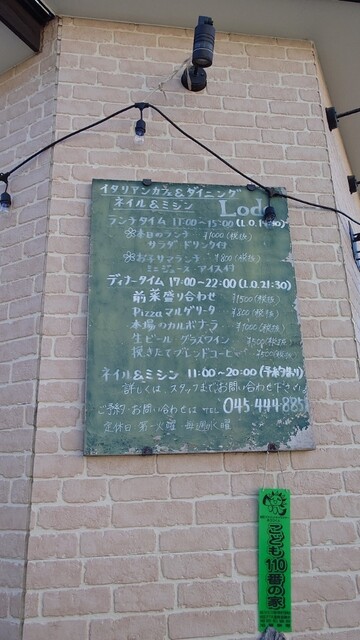 イタリアンカフェ&ダイニング
ネイル&ミシン Lod
ランチタイム 11:00~15:00 (L.O.14:30)
本日のランチ ¥1000(税抜)
サラダ ドリンク付
お子サマランチ ¥800(税抜)
ミニジュース アイス付
ディナータイム 17:00~22:00 (L.O.21:30)
前菜盛り合わせ ¥1500(税抜)
Pizza マルゲリータ ¥800(税抜)
本場のカルボナーラ ¥1000(税抜)
生ビール グラスワイン ¥500(税抜)
挽きたてブレンドコーヒー ¥500(税抜)
ネイル&ミシン 11:00~20:00 (予約有り)
詳しくは スタッフまで、お問い合わせ下さい
ご予約・お問い合わせは TEL 045-444-8851
定休日 第一火曜 毎週水曜
こども110番の家